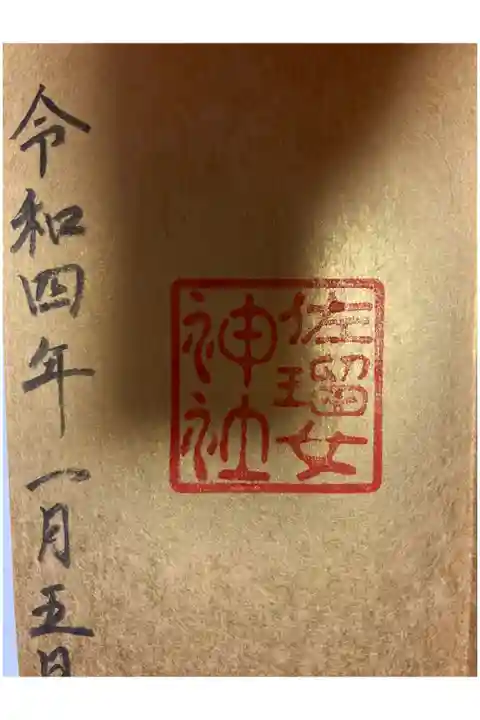 佐瑠女
神社
令和四年一月五日